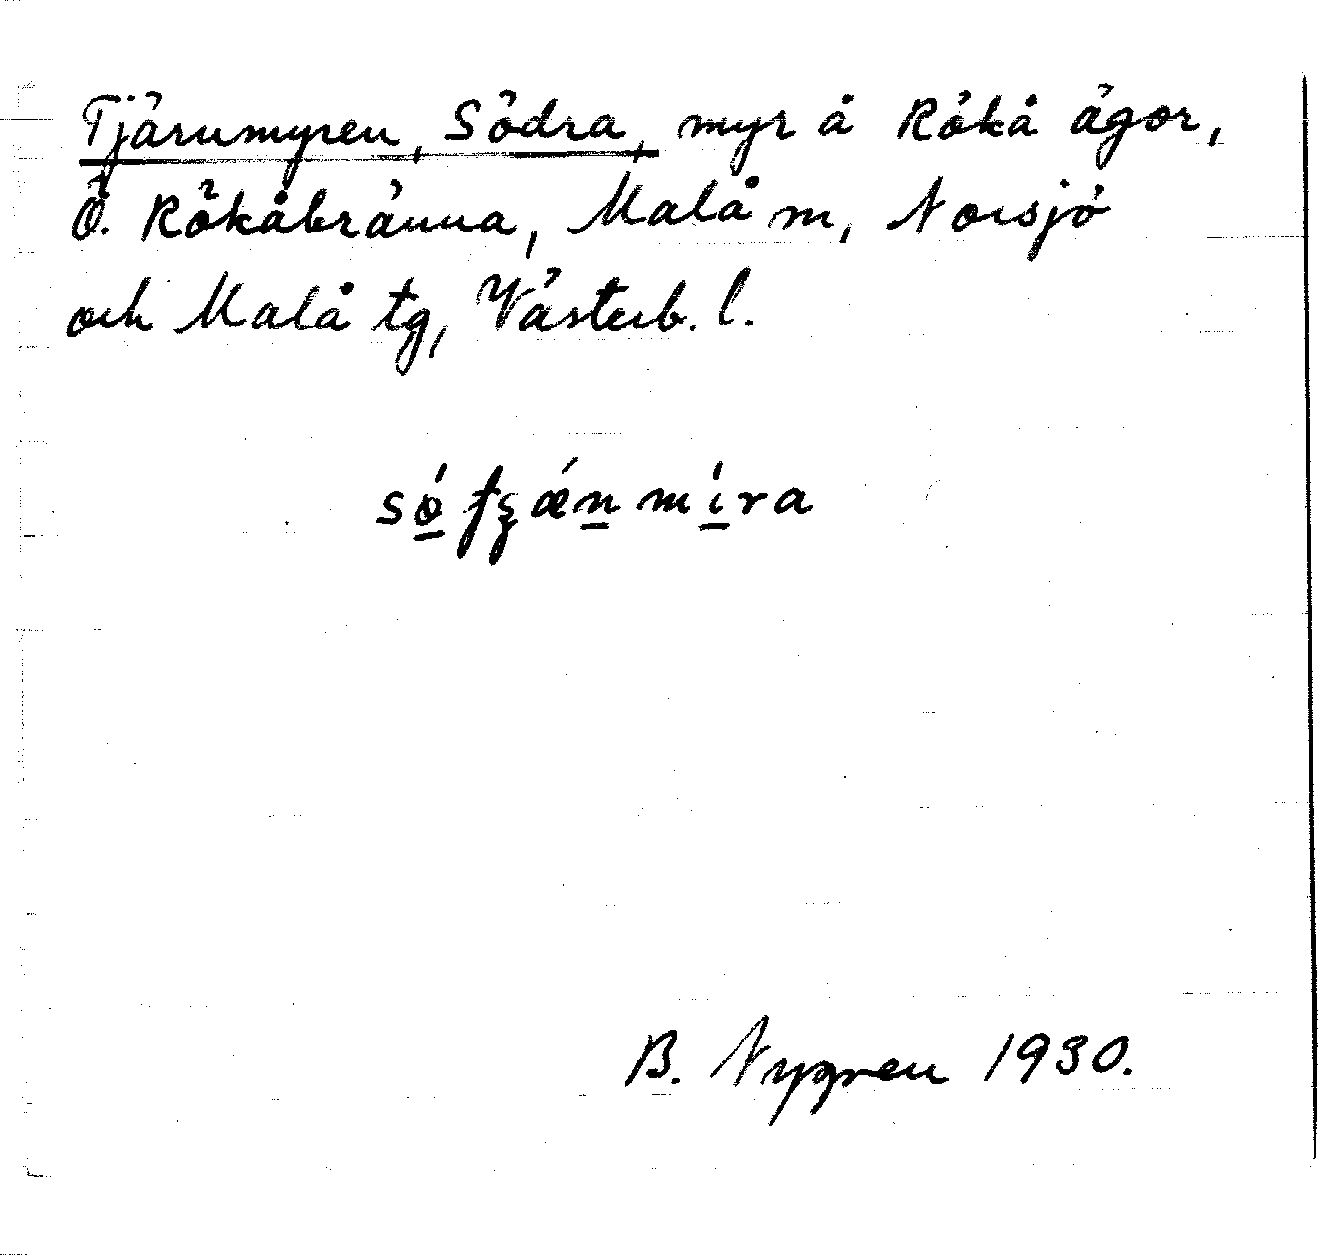 Tjärnmyren, Södra, myr å Rökå ägor,
Ö. Rökåbränna, Malå m, Norsjö
och Malå tg, Västerb. l.
B. Nygren 1930.